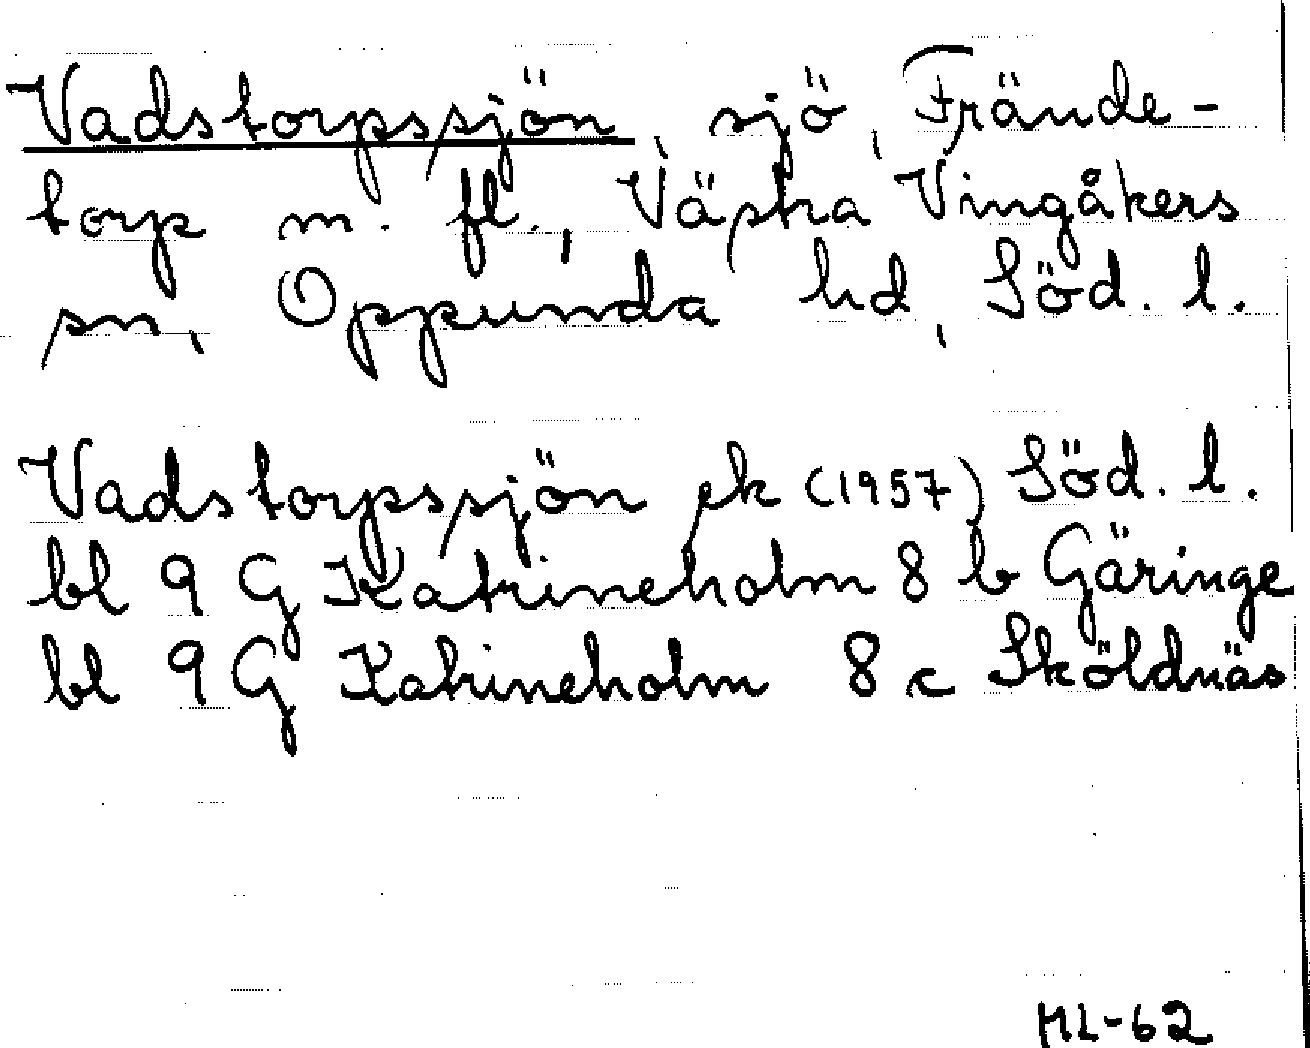 Vadstorpssjön, sjö, Frände-
torp m. fl., Västra Vingåkers
sn, Oppunda hd, Söd. l.
Vadstorpssjön ek (1957) Söd. l.
bl 9 G Katrineholm 8 b Gäringe
bl 9 G Katrineholm 8 c Sköldnäs
ML-62